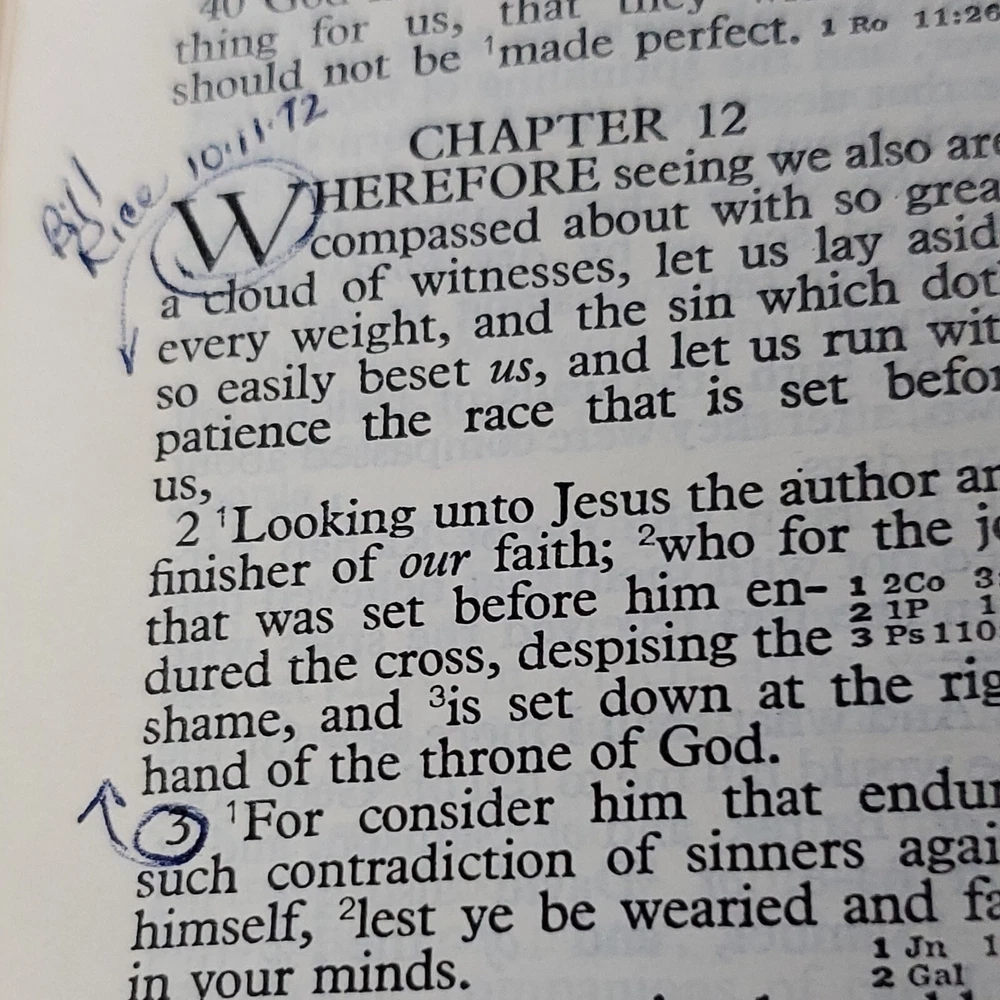 40 God
thing for us, that they
should not be ¹made perfect. 1 Ro 11:26
Bill
Rice 10·11·72
CHAPTER 12
WHEREFORE seeing we also are
compassed about with so grea
a cloud of witnesses, let us lay asid
every weight, and the sin which dot
so easily beset us, and let us run wit
patience the race that is set befor
us,
2 ¹Looking unto Jesus the author an
finisher of our faith; ²who for the jo
that was set before him en- 1 2Co 3:
2 1P 1
dured the cross, despising the 3 Ps 110
shame, and ³is set down at the rig
hand of the throne of God.
3 ¹For consider him that endur
such contradiction of sinners agai
himself, ²lest ye be wearied and fa
in your minds. 1 Jn 1
2 Gal